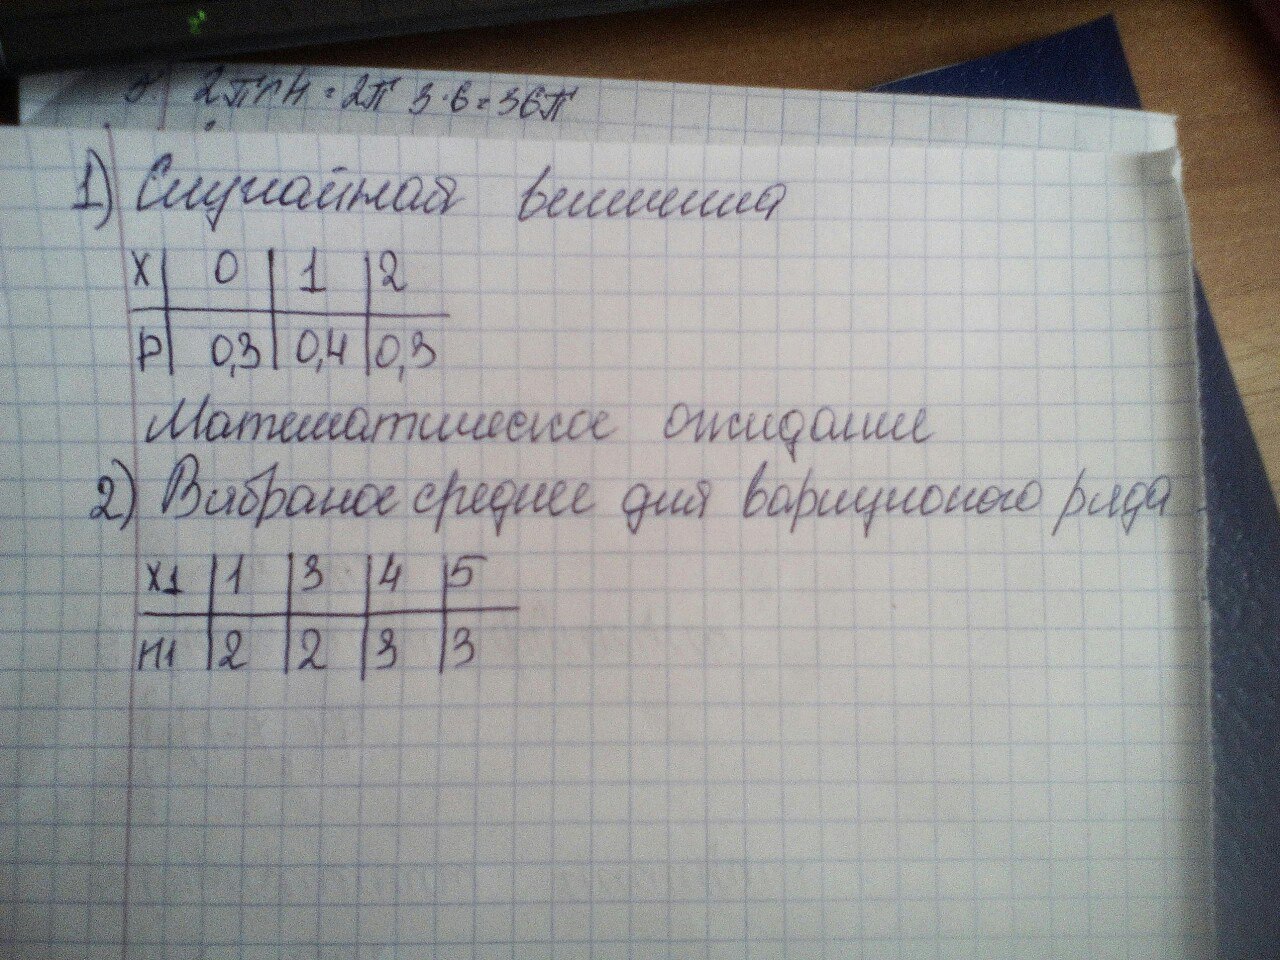 2πrh = 2π 3·6 = 36π
1) Случайная величина
X | 0 | 1 | 2
P | 0,3 | 0,4 | 0,3
Математическое ожидание
2) Выбраное среднее для вариционого ряда
X1 | 1 | 3 | 4 | 5
n1 | 2 | 2 | 3 | 3